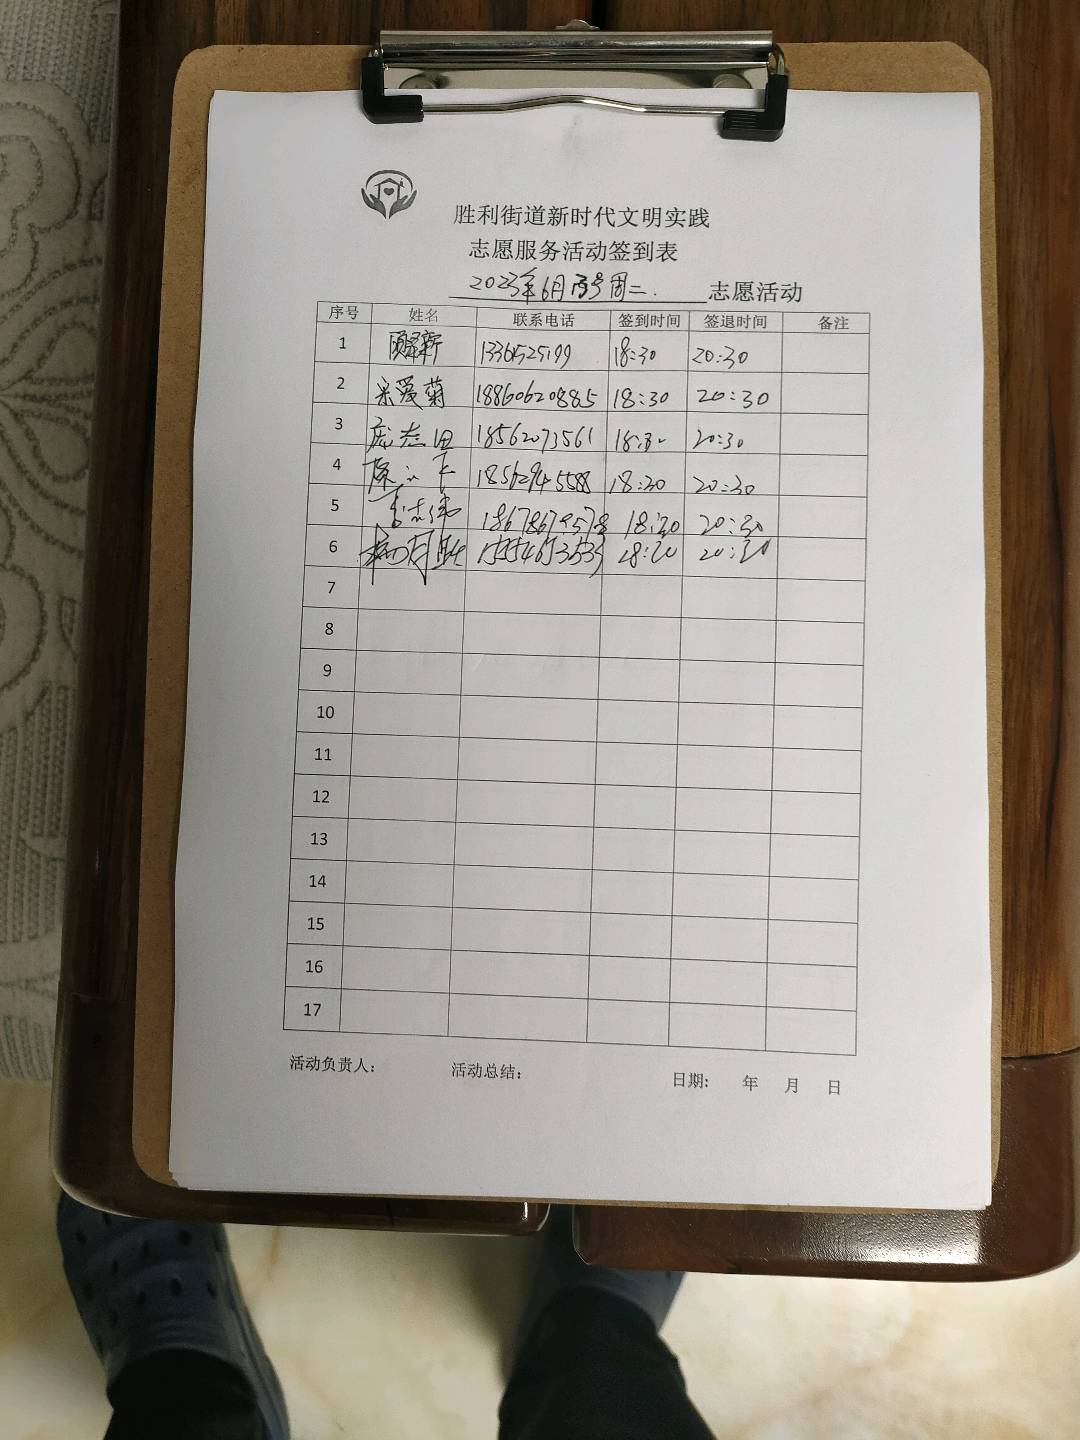 胜利街道新时代文明实践
志愿服务活动签到表
2023年6月 号周二. 志愿活动
序号 姓名 联系电话 签到时间 签退时间 备注
1 18:30 20:30
2 宋爱菊 18860620885 18:30 20:30
3 庞志田 18562073561 18:30 20:30
4 18562945588 18:30 20:30
5 李志伟 18:30 20:30
6 18:30 20:30
7
8
9
10
11
12
13
14
15
16
17
活动负责人: 活动总结: 日期: 年 月 日